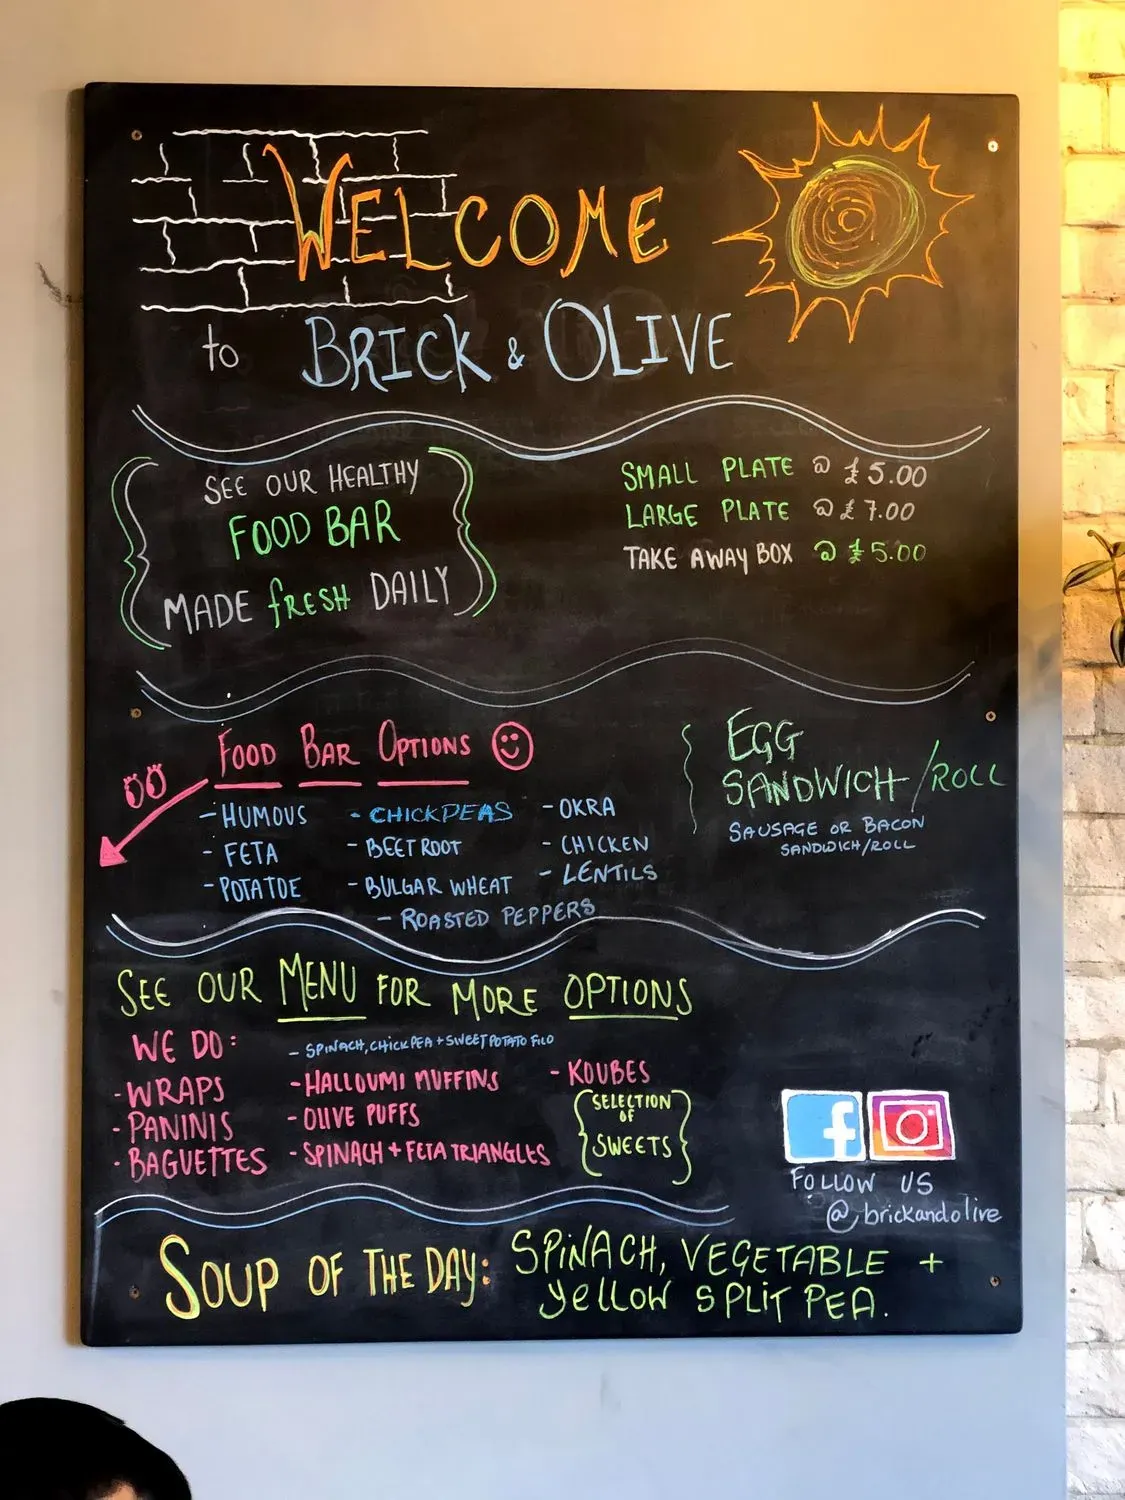 WELCOME
to BRICK & OLIVE
SEE OUR HEALTHY
FOOD BAR
MADE fRESH DAILY
SMALL PLATE @ £5.00
LARGE PLATE @ £7.00
TAKE AWAY BOX @ £5.00
FOOD BAR OPTIONS
- HUMOUS
- FETA
- POTATOE
- CHICKPEAS
- BEETROOT
- BULGAR WHEAT
- ROASTED PEPPERS
- OKRA
- CHICKEN
- LENTILS
EGG
SANDWICH/ROLL
SAUSAGE OR BACON
SANDWICH/ROLL
SEE OUR MENU FOR MORE OPTIONS
WE DO:
- WRAPS
- PANINIS
- BAGUETTES
- SPINACH, CHICKPEA + SWEET POTATO FILO
- HALLOUMI MUFFINS
- OLIVE PUFFS
- SPINACH + FETA TRIANGLES
- KOUBES
SELECTION
OF
SWEETS
f
FOLLOW US
@brickandolive
SOUP OF THE DAY: SPINACH, VEGETABLE +
YELLOW SPLIT PEA.